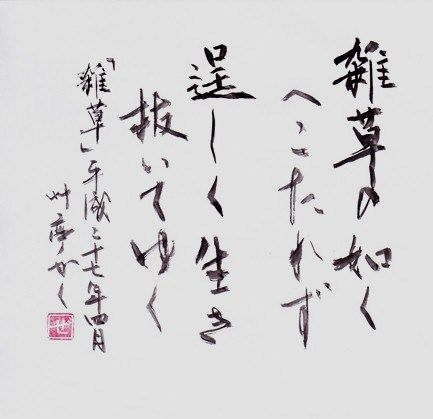 雑草の如く
へこたれず
逞しく生き
抜いてゆく
「雑草」平成二十七年四月
艸亭かく